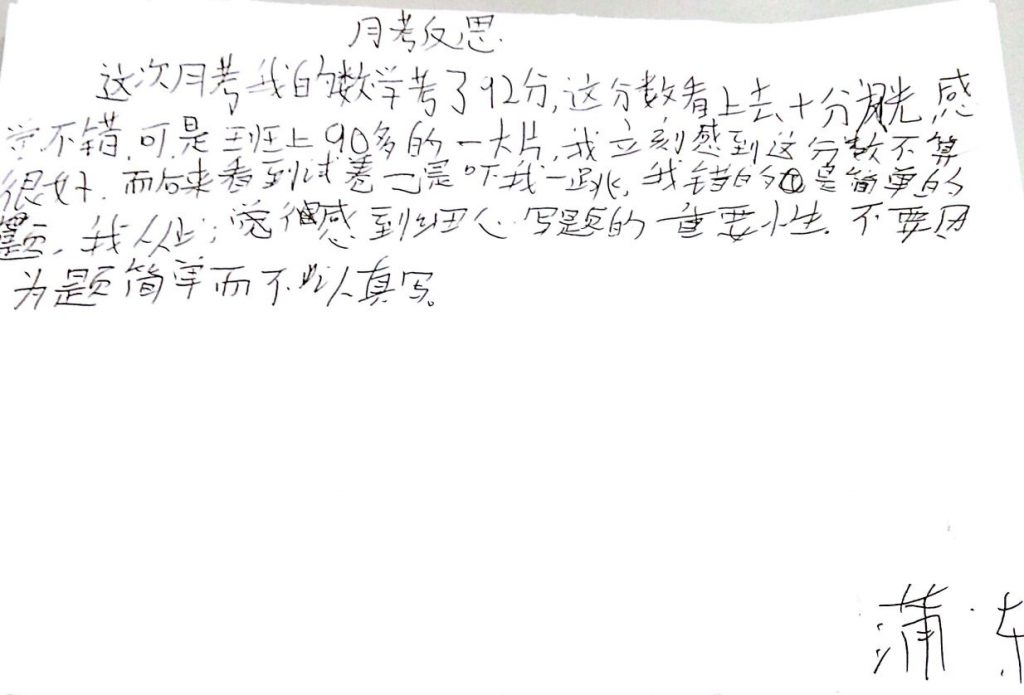 月考反思
这次月考我的数学考了92分,这分数看上去十分光,感
觉不错,可是班上90多的一大片,我立刻感到这分数不算
很好.而后来看到试卷更是吓我一跳,我错的是简单的
题,我感到细心写题的重要性.不要因
为题简单而不认真写。
蒲